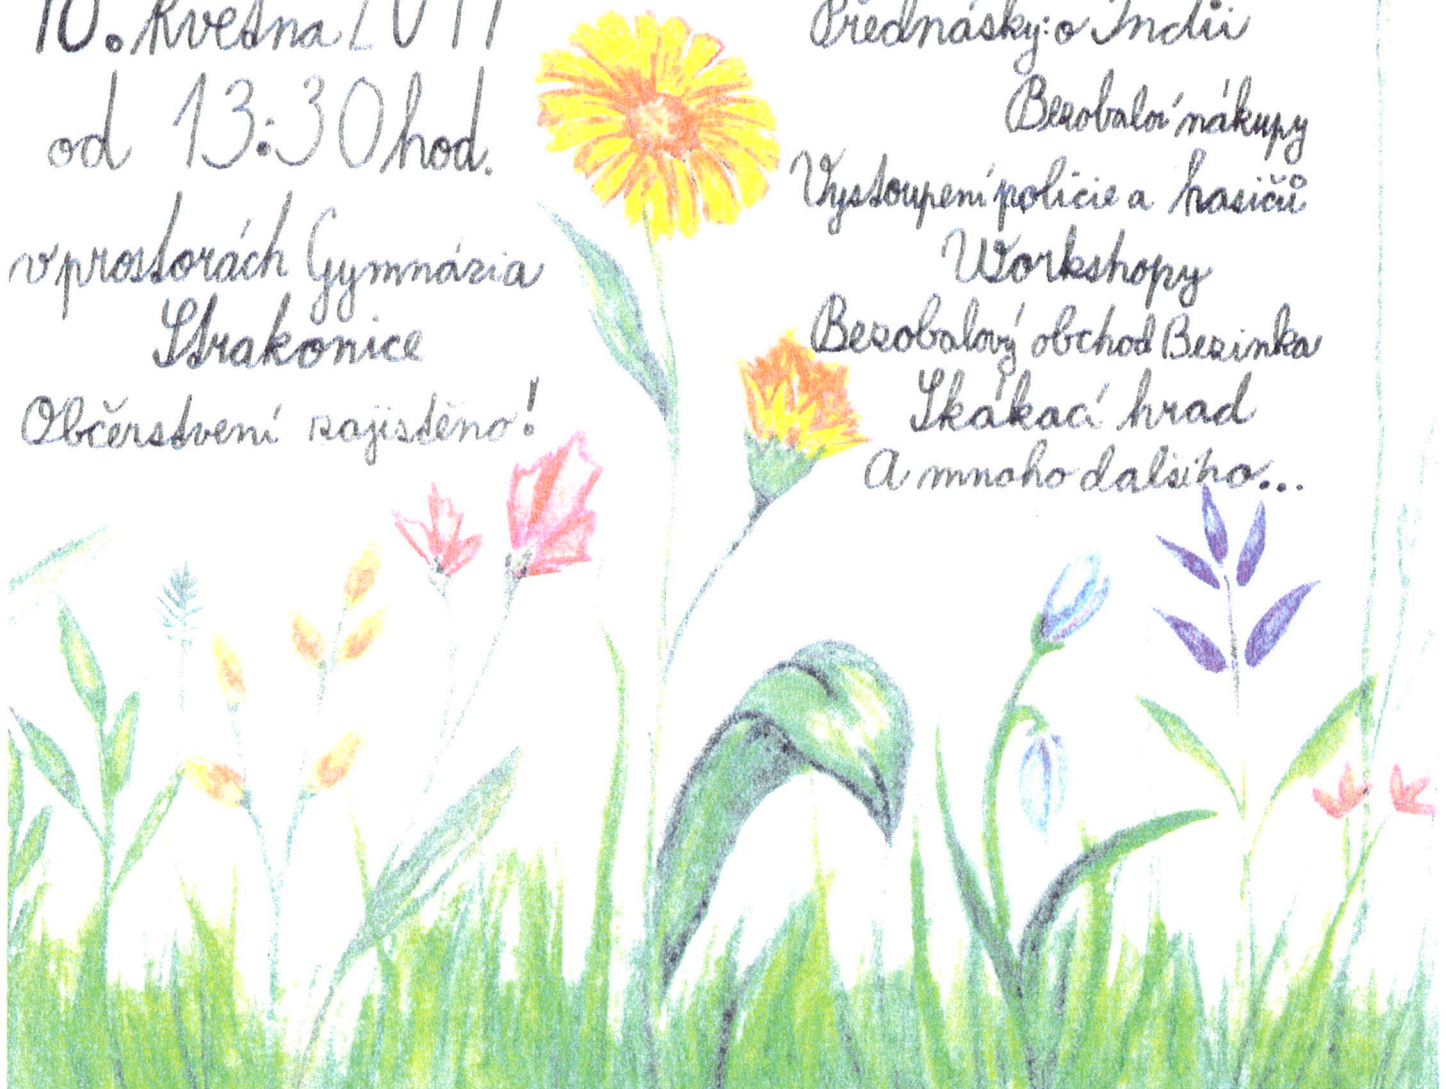 10. Května
od 13:30 hod.
v prostorách Gymnázia
Strakonice
Občerstvení zajištěno!
Přednášky: o Indii
Bezobaloví nákupy
Vystoupení policie a hasičů
Workshopy
Bezobalový obchod Bezinka
Skákací hrad
A mnoho dalšího...